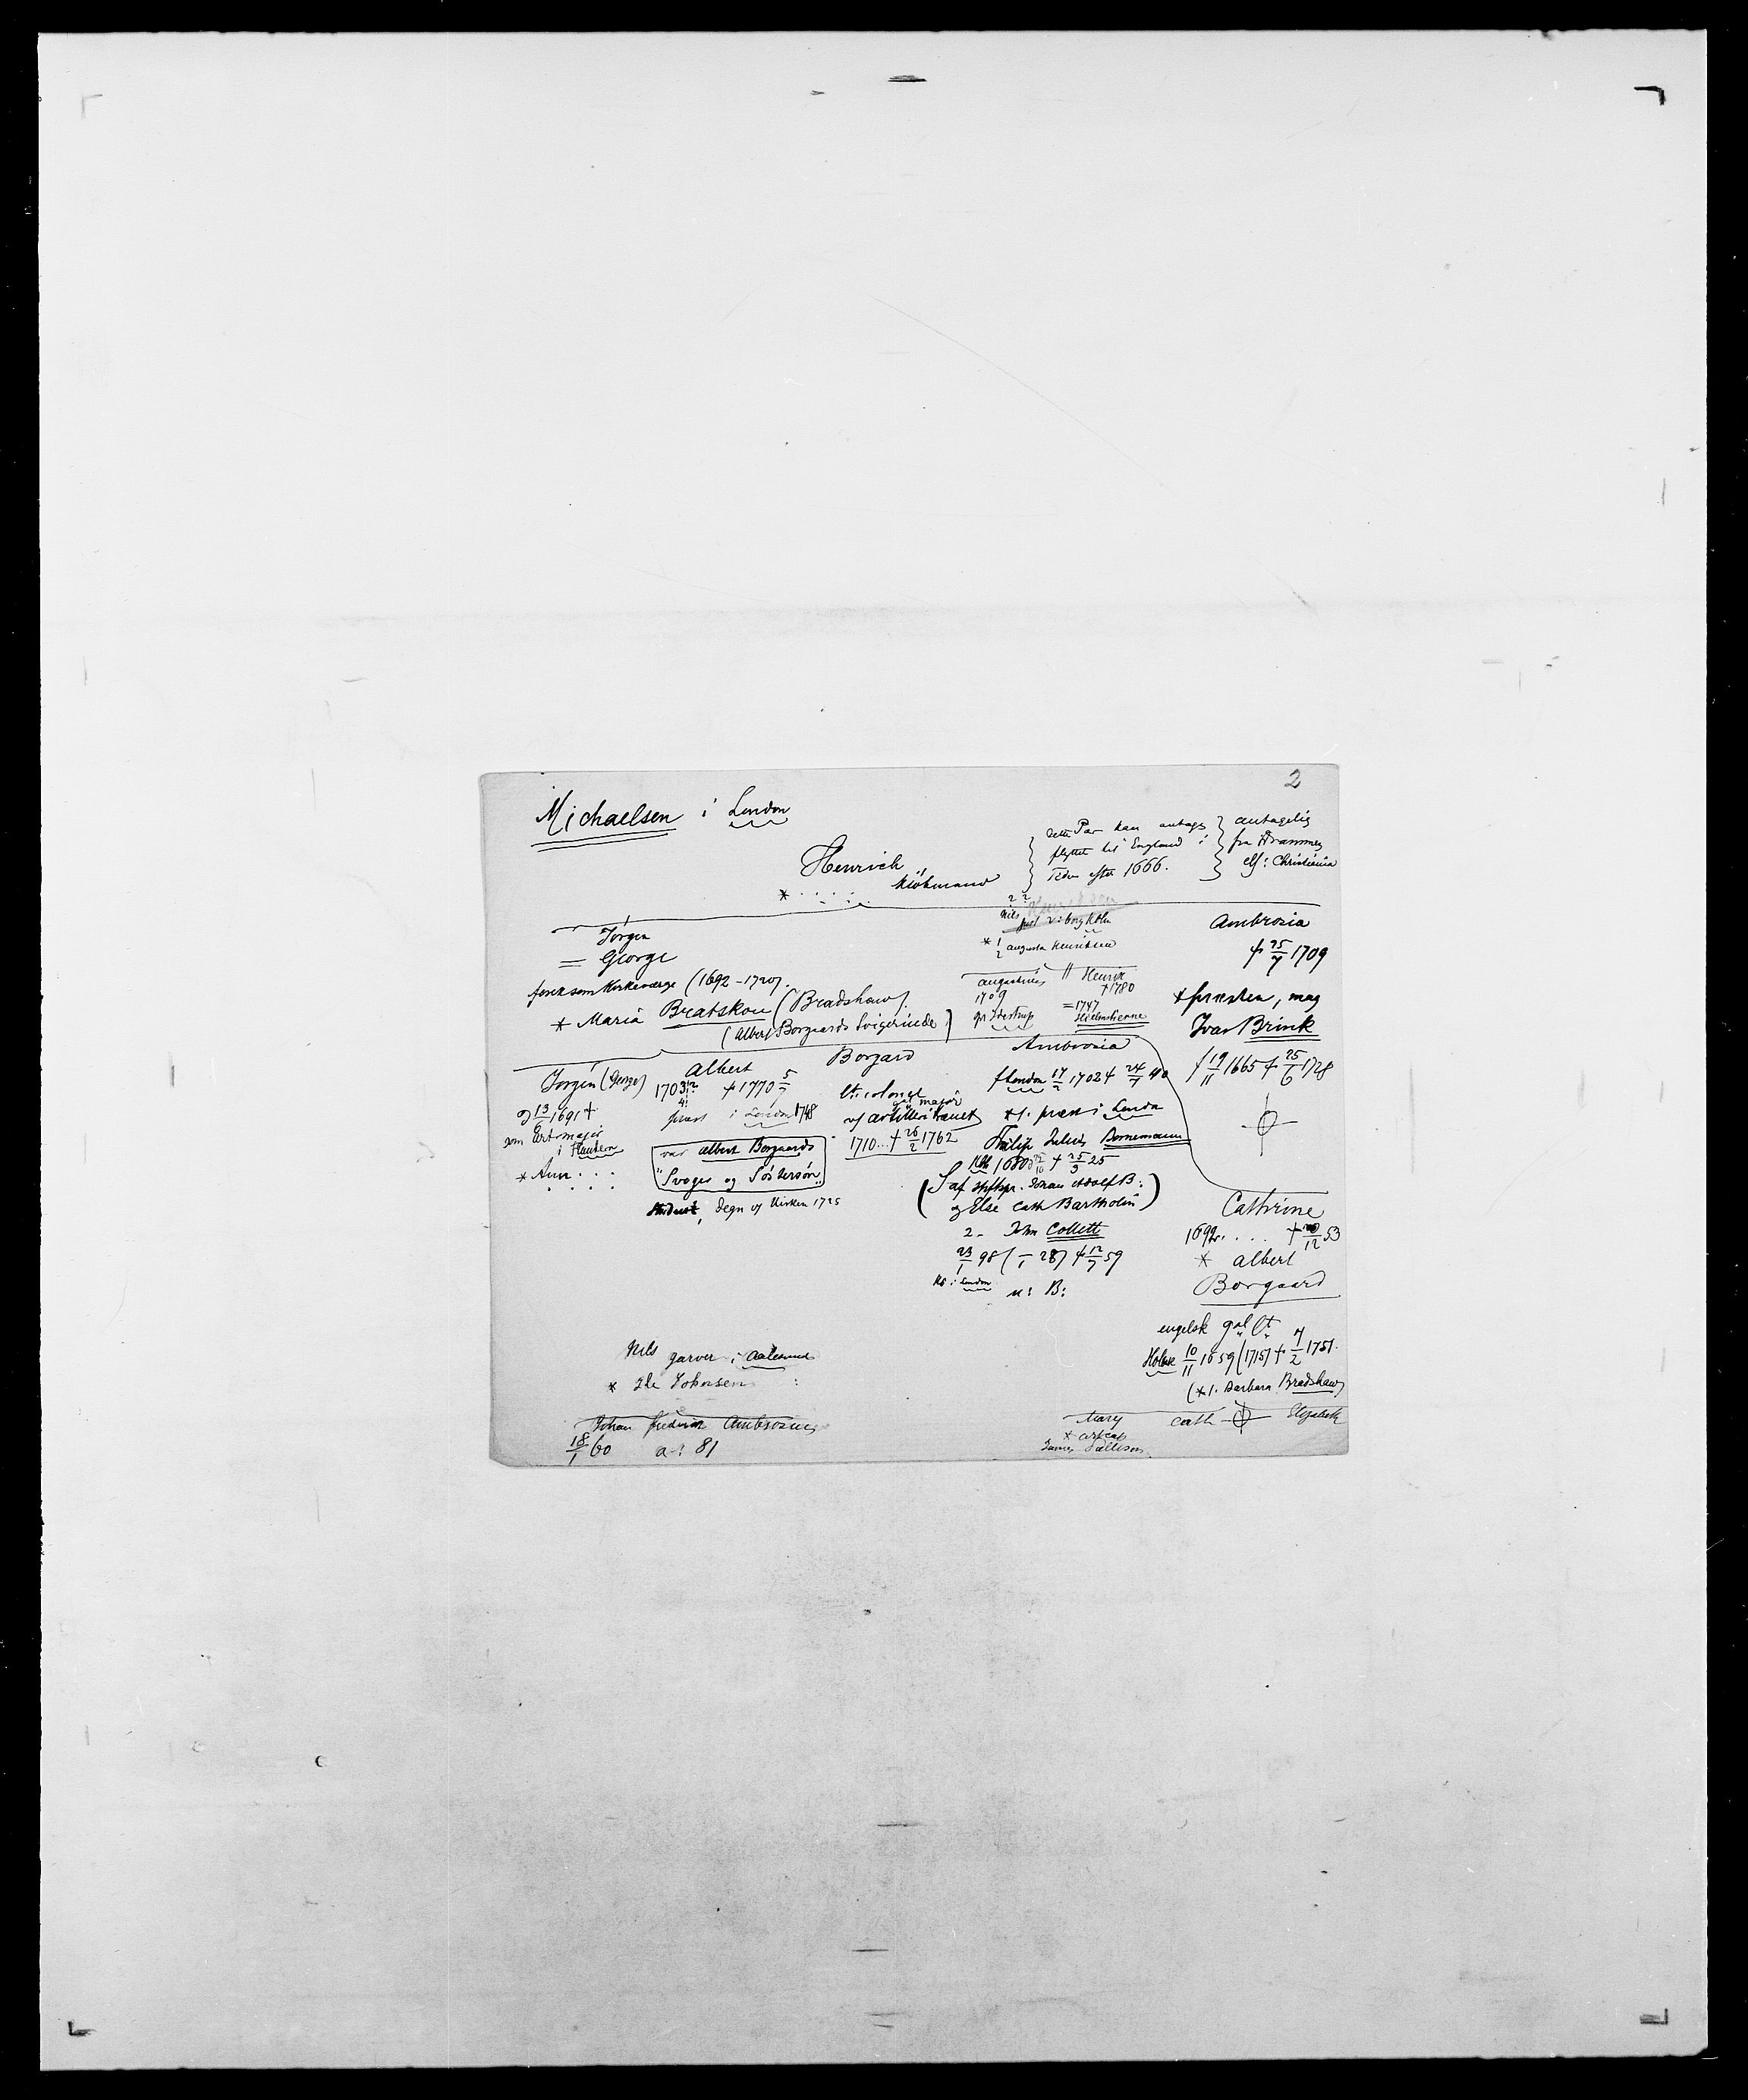 2
Michaelsen i London
dette Par kan antages
flyttet til England i
Tiden efter 1666.
antagelig
fra Drammen
elf: Christiania
Henrich
* . . . . . Kiöbmand
Jörgen
= George
forek som Kirkeværge (1692-1720).
* Maria Bratskou (Bradshaw)
(Albert Borgaards Svigerinde)
? ?
Nils
Juel Viborg Kbhn
* 1 Augusta Henriksen
2
Augustinus
1709
gr. Idestrup
" Henrik
† 1780
= 1747
Hielmstierne
Ambrosia
† 25/7 1709
* præsten, mag
Ivar Brink
f 19/11 1665 † 25/6 1728
Jörgen (George)
13/ 1691 †
som Art major
i Flandern
* Ann . . .
Albert
1703 † 1770 5/7
præst i London 1748
var Albert Borgaards
"Svoger og Söstersön"
Student, Degn v/ Kirken 1725
Borgard
lt. colonel
major
v/ artilleri
1710 .. † 26/2 1762
Ambrosia
f London 17/2 1702 † 24/7 40
* 1. præst i London
Philip Julius Bornemann
Kbh 1680 † 25/3 25
(S af Johan Adolf B:
og Else Cath Bartholin)
2 - John Collett
23/1 98 (-/1 28) † 12/7 59
Kb i London
u: B:
Cathrine
1692 . . . . † /12 53
* Albert
Borgaard
engelsk gnl lt
Holbæk 10/11 1659 (1715) † 7/2 1751.
(* 1. Barbara Bradshaw)
Mary
*
James Pattison
Cath
Elizabeth
Nils garver i Aalesund
* Ida Johnsen
Johan Fredrik Ambrosius
18/1 60 a: 81